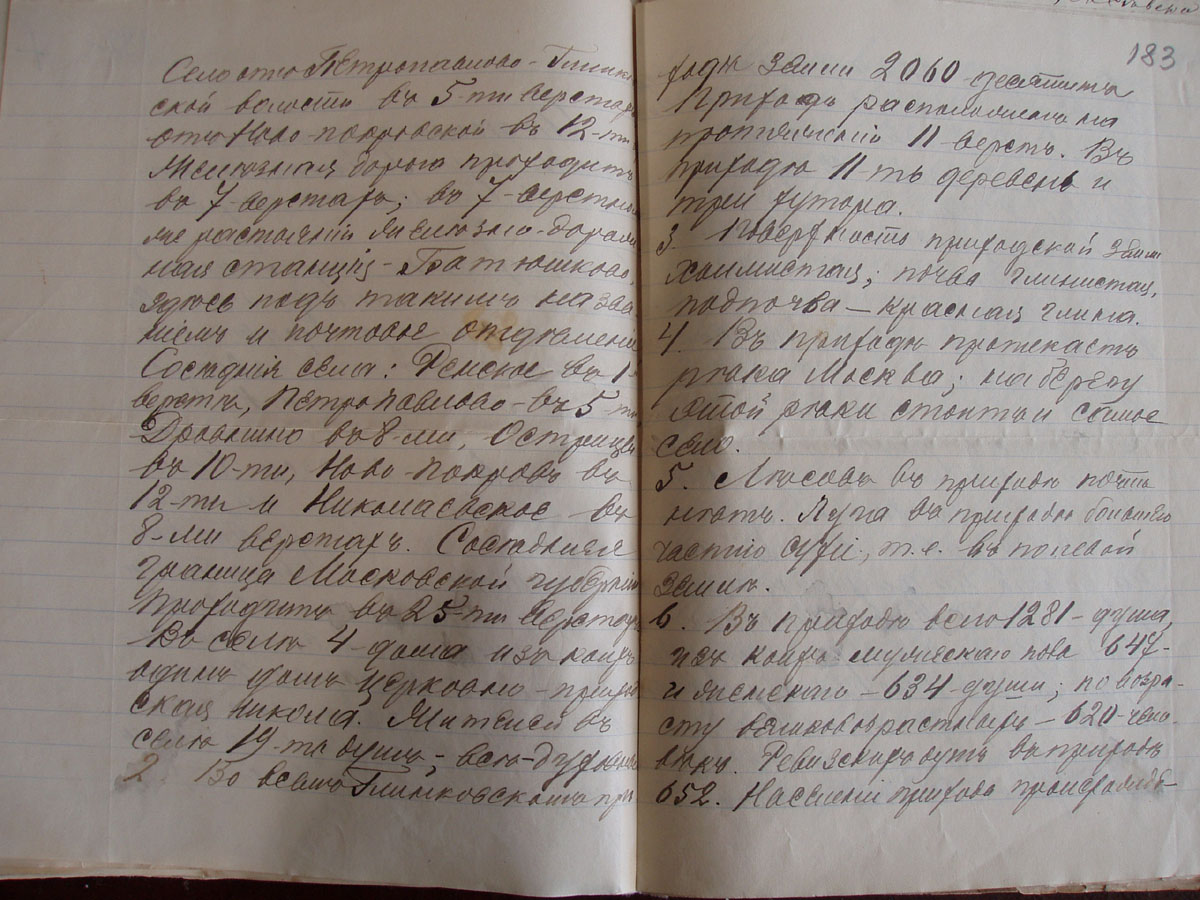 Село это Петропавлово-Глинков
ской волости въ 5-ти верстахъ
отъ Ново-покровской въ 12-ти
Желѣзная дорога проходитъ
въ 7-верстахъ; въ 7-верстномъ
же растояніи желѣзно-дорож
ная станція-Батюшково,
здѣсь подъ такимъ назва
ніемъ и почтовое отдѣленіе
Сосѣднія села: Ренское въ 1
верстѣ, Петропавлово-въ 5-ти
въ 8-ми, Острицы
въ 10-ти, Ново-покровъ въ
12-ти и Николаевское въ
8-ми верстахъ. Сосѣдняя
граница Московской губерніи
проходитъ въ 25-ти верстахъ
Въ селѣ 4-дома изъ коихъ
одинъ домъ церковно-приход
ская школа. Жителей въ
селѣ 19-ть душъ,-все-духовные
2. Во всемъ Глинковскомъ при
183
ходѣ земли 2060-десятинъ
Приходъ расположенъ на
протяженіи 11 верстъ. Въ
приходѣ 11-ть деревень и
три хутора.
3. Поверхность приходской земли
холмистая; почва глинистая,
подпочва — красная глина.
4. Въ приходѣ протекаетъ
рѣка Москва; на берегу
этой рѣки стоитъ и самое
село.
5. Лѣсовъ въ приходѣ почти
нѣтъ. Луга въ приходѣ большею
частію сухіе, т.е. въ полевой
землѣ.
6. Въ приходѣ всего 1281-душа,
изъ коихъ мужескаго пола 647-
и женскаго-634-души; по возра-
сту великовозрастныхъ-620-чело-
вѣкъ. Ревизскихъ душъ въ приходѣ
652. Населеніе прихода